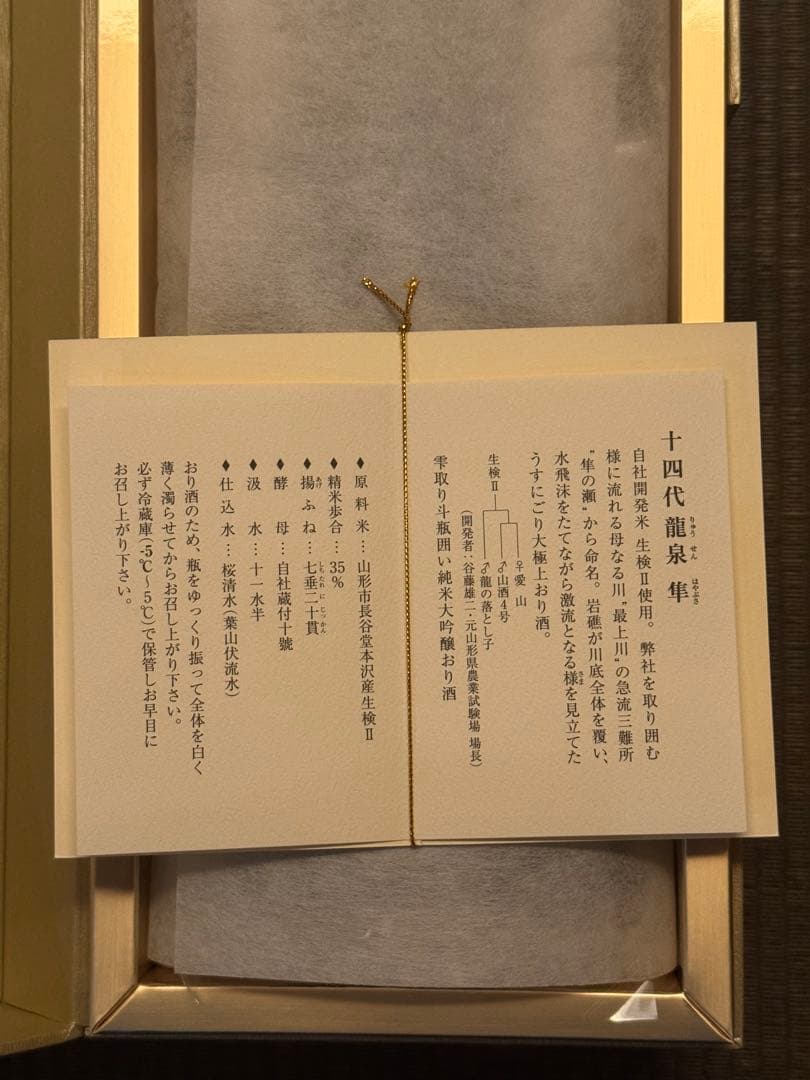 十四代 龍泉 隼
りゅう せん はやぶさ
自社開発米 生検Ⅱ使用。弊社を取り囲む
様に流れる母なる川“最上川”の急流三難所
“隼の瀬”から命名。岩礁が川底全体を覆い、
水飛沫をたてながら激流となる様を見立てた
さま
うすにごり大極上おり酒。
♀愛山
♂山酒4号
生検Ⅱ
♂龍の落とし子
(開発者:谷藤雄二・元山形県農業試験場 場長)
雫取り斗瓶囲い純米大吟醸おり酒
♦原料米…山形市長谷堂本沢産生検Ⅱ
♦精米歩合…35%
♦揚ふね…七垂二十貫
あげ しちたれ に じっかん
♦酵母…自社蔵付十號
♦汲水…十一水半
♦仕込水…桜清水(葉山伏流水)
おり酒のため、瓶をゆっくり振って全体を白く
薄く濁らせてからお召し上がり下さい。
必ず冷蔵庫(-5℃~5℃)で保管しお早目に
お召し上がり下さい。